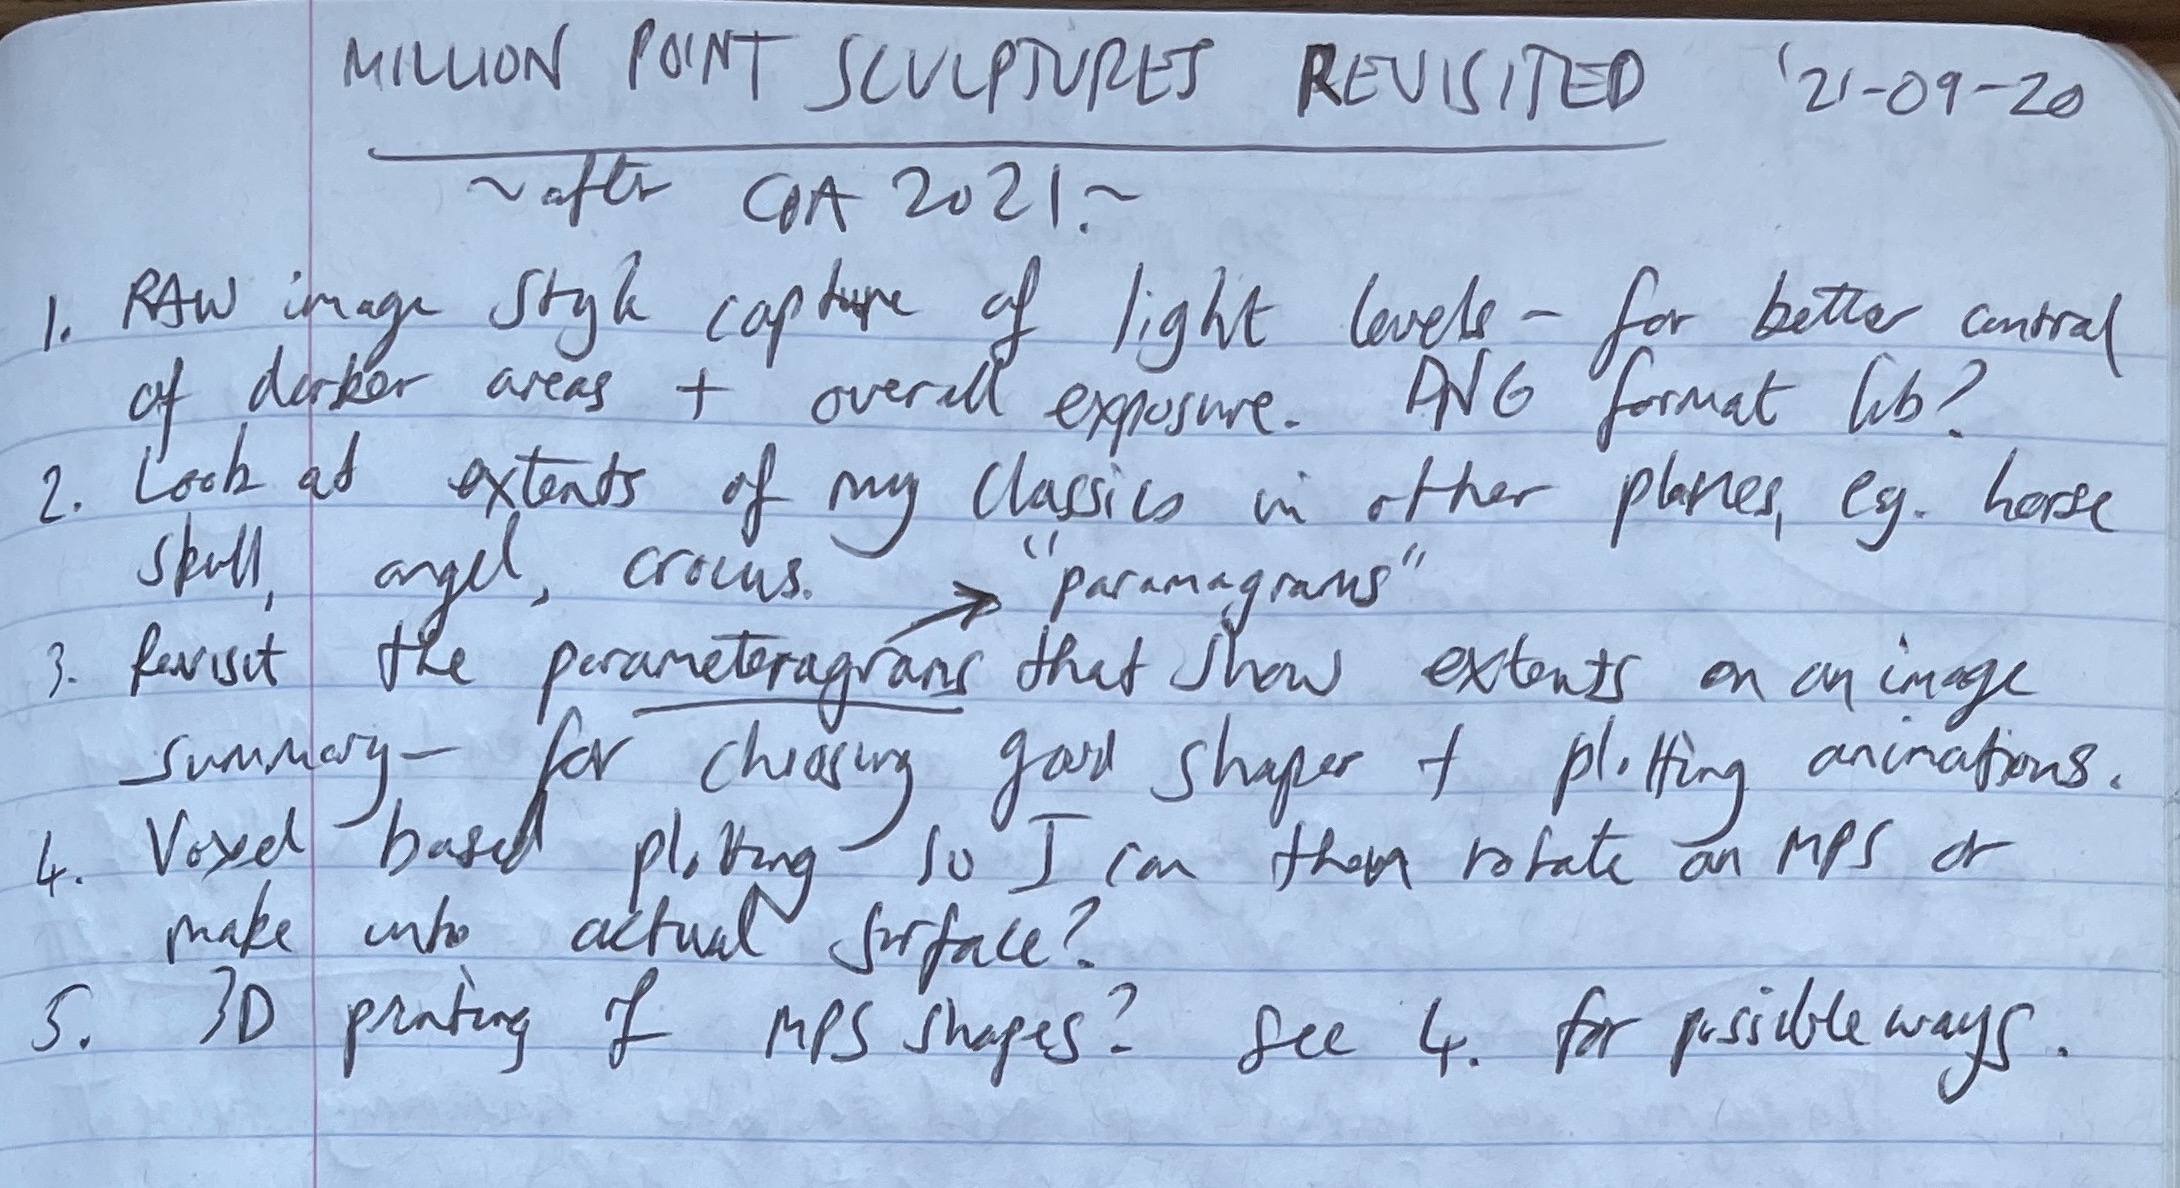 MILLION POINT SCULPTURES REVISITED '21-09-20
~after COA 2021.~
1. RAW image style capture of light levels - for better control
of darker areas + overall exposure. DNG format lib?
2. Look at extents of my classics in other planes, eg. horse
skull, angel, crocus. "paramagrams"
3. Revisit the parameteragrams that show extents on an image
summary - for choosing good shapes + plotting animations.
4. Voxel based plotting so I can then rotate an MPS or
make into actual surface?
5. 3D printing of MPS shapes? See 4. for possible ways.